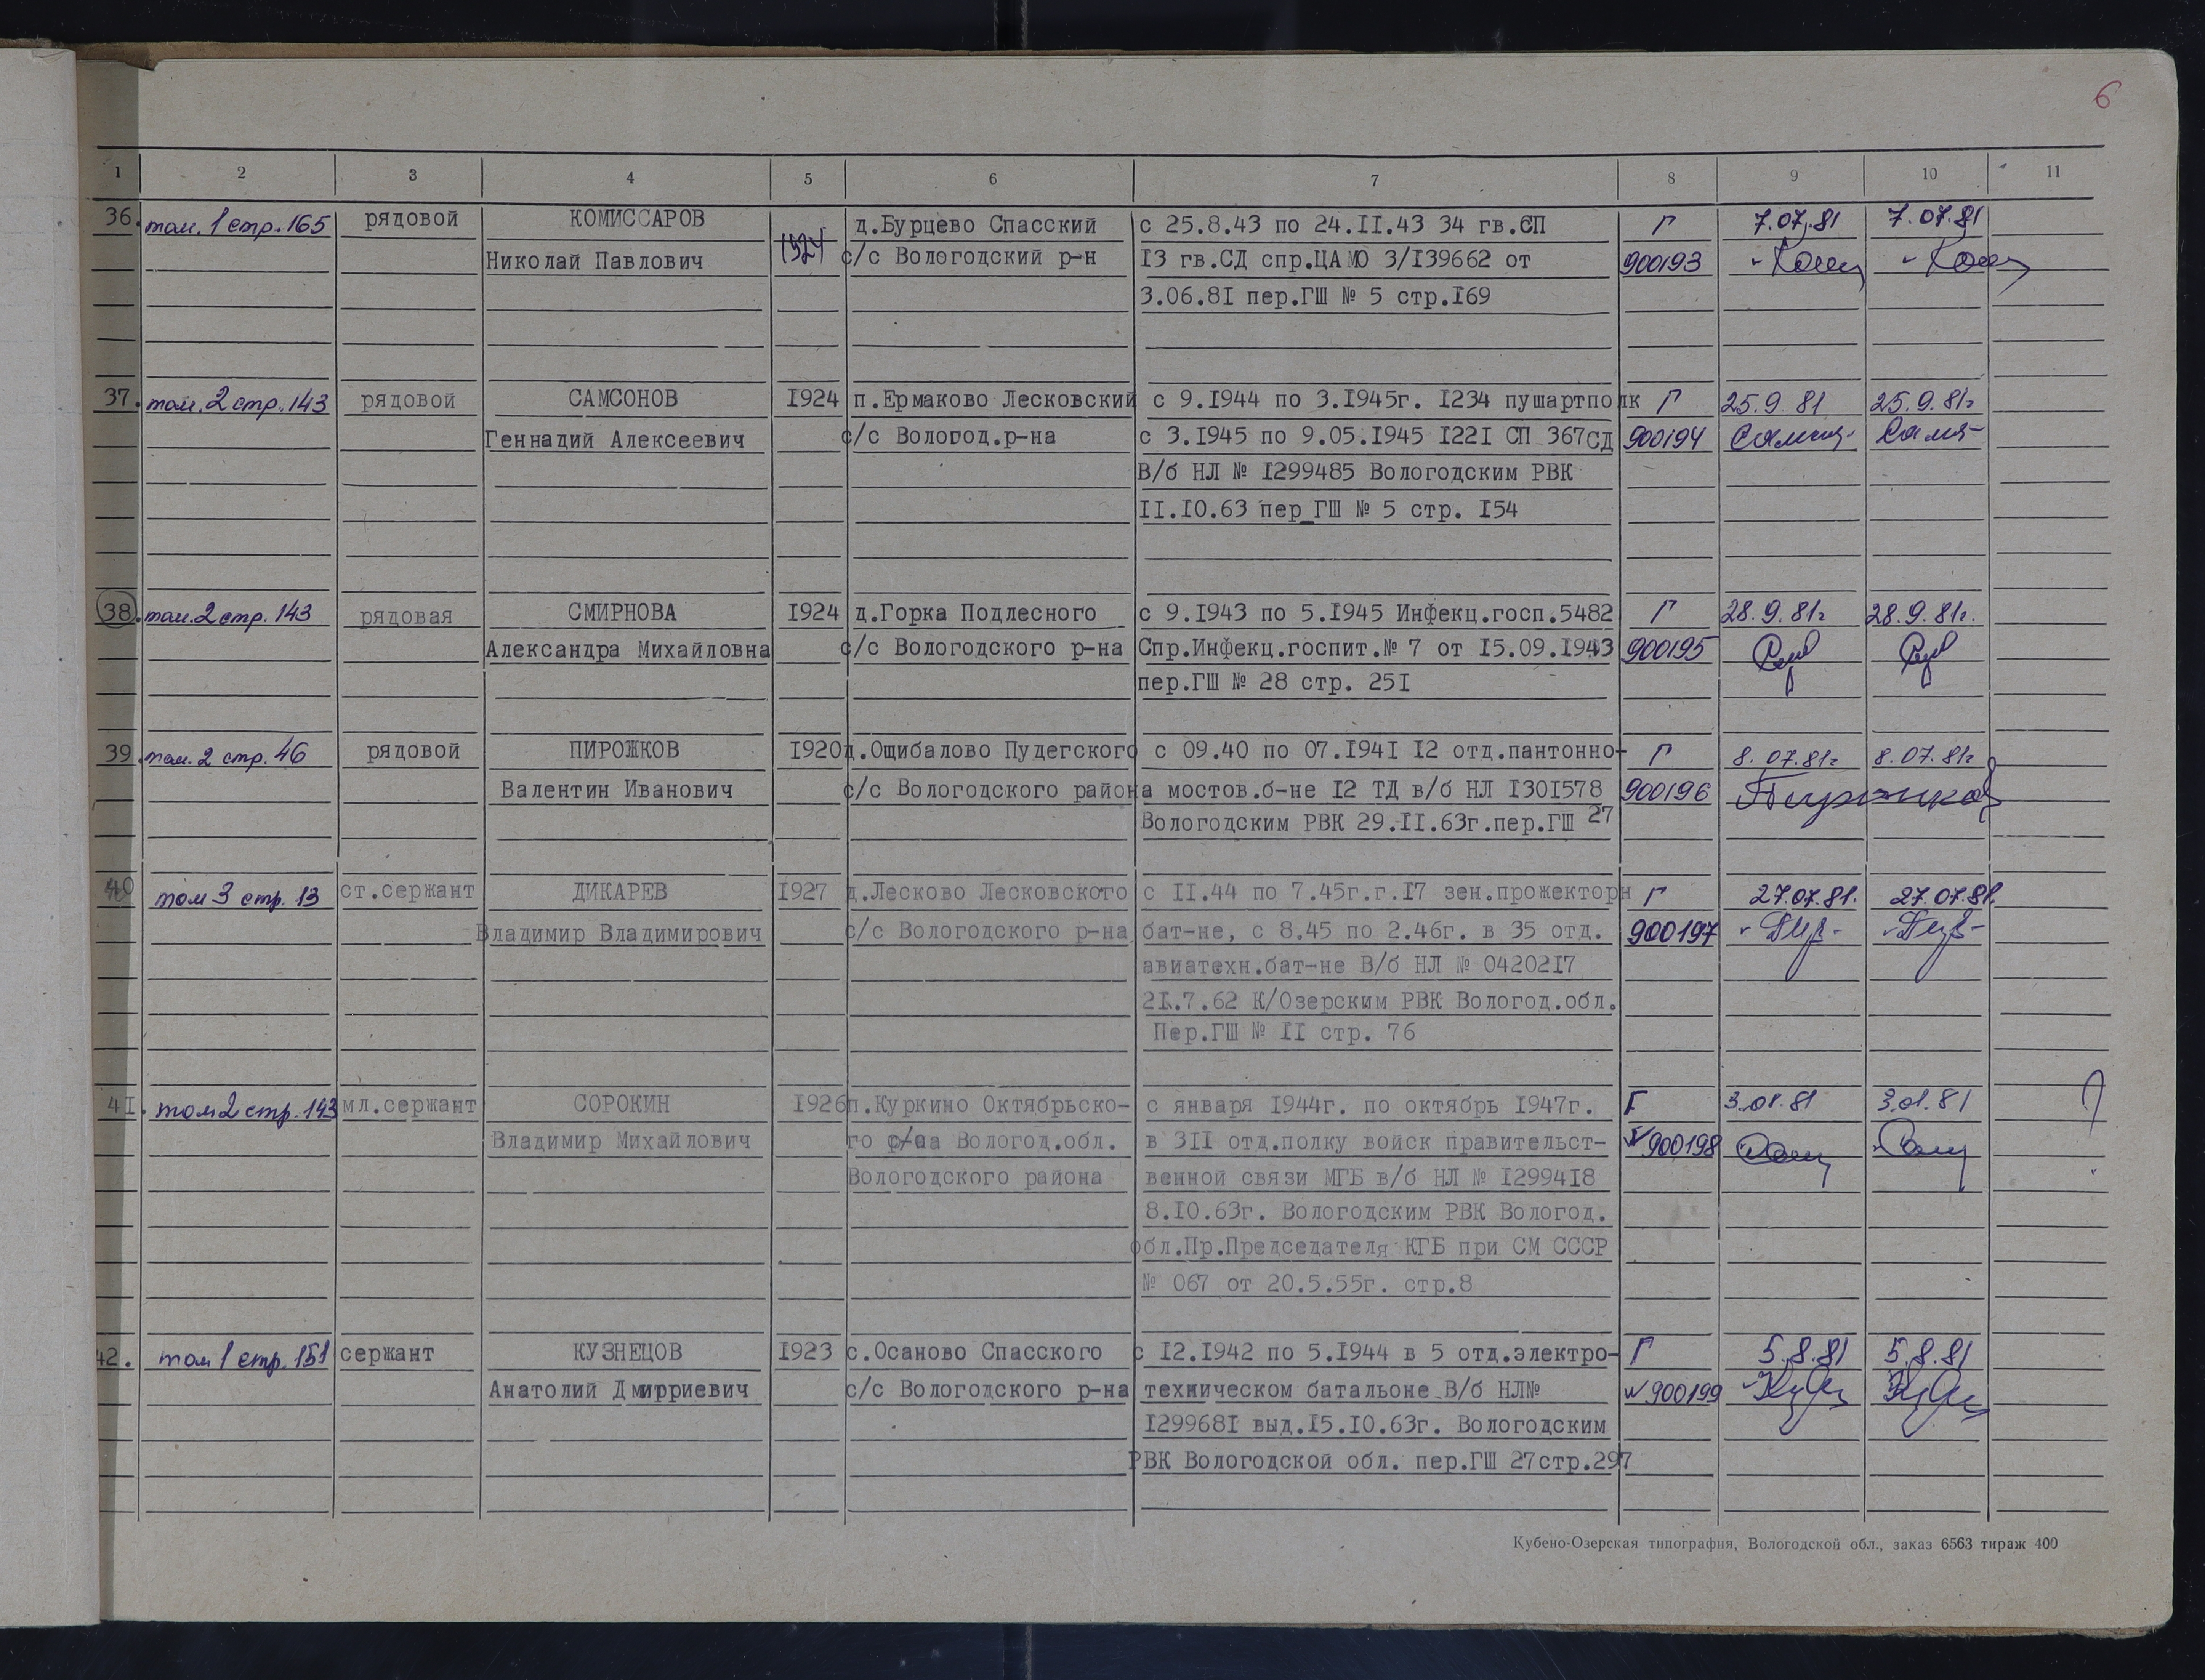 6
1 2 3 4 5 6 7 8 9 10 11
36. том. 1 стр. 165 рядовой КОМИССАРОВ 1924 д.Бурцево Спасский с 25.8.43 по 24.II.43 34 гв.СП Г 7.07.81 7.07.81
Николай Павлович с/с Вологодский р-н I3 гв.СД спр.ЦАМО 3/I39662 от 900193
3.06.8I пер.ГШ № 5 стр.I69
37. том. 2 стр. 143 рядовой САМСОНОВ I924 п.Ермаково Лесковский с 9.I944 по 3.I945г. I234 пушартполк Г 25.9.81 25.9.81г
Геннадий Алексеевич с/с Вологод.р-на с 3.I945 по 9.05.I945 I22I СП 367СД 900194
В/б НЛ № I299485 Вологодским РВК
II.I0.63 пер_ГШ № 5 стр. I54
38. том. 2 стр. 143 рядовая СМИРНОВА I924 д.Горка Подлесного с 9.I943 по 5.I945 Инфекц.госп.5482 Г 28.9.81г 28.9.81г.
Александра Михайловна с/с Вологодского р-на Спр.Инфекц.госпит.№ 7 от I5.09.I943 900195
пер.ГШ № 28 стр. 25I
39. том. 2 стр. 46 рядовой ПИРОЖКОВ I920 д.Ощибалово Пудегского с 09.40 по 07.I94I I2 отд.пантонно- Г 8.07.81г 8.07.81г
Валентин Иванович с/с Вологодского района мостов.б-не I2 ТД в/б НЛ I30I578 900196
Вологодским РВК 29.II.63г.пер.ГШ 27
40 том 3 стр. 13 ст.сержант ДИКАРЕВ I927 д.Лесково Лесковского с II.44 по 7.45г.г.I7 зен.прожекторн Г 27.07.81. 27.07.81.
Владимир Владимирович с/с Вологодского р-на бат-не, с 8.45 по 2.46г. в 35 отд. 900197
авиатехн.бат-не В/б НЛ № 04202I7
2I.7.62 К/Озерским РВК Вологод.обл.
Пер.ГШ № II стр. 76
4I. том 2 стр. 143 мл.сержант СОРОКИН I926 п.Куркино Октябрьско- с января I944г. по октябрь I947г. Г 3.01.81 3.01.81
Владимир Михайлович го с/са Вологод.обл. в 3II отд.полку войск правительст- 900198
Вологодского района венной связи МГБ в/б НЛ № I2994I8
8.I0.63г. Вологодским РВК Вологод.
обл.Пр.Председателя КГБ при СМ СССР
№ 067 от 20.5.55г. стр.8
42. том 1 стр. 151 сержант КУЗНЕЦОВ I923 с.Осаново Спасского с I2.I942 по 5.I944 в 5 отд.электро- Г 5.8.81 5.8.81
Анатолий Дмитриевич с/с Вологодского р-на техническом батальоне В/б НЛ№ 900199
I29968I выд.I5.I0.63г. Вологодским
РВК Вологодской обл. пер.ГШ 27стр.297
Кубено-Озерская типография, Вологодской обл., заказ 6563 тираж 400